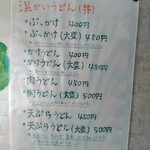 温かいうどん(丼)
ぶっかけ 400円
ぶっかけ(大盛) 450円
かけうどん 400円
かけうどん(大盛) 450円
肉うどん 450円
肉うどん(大盛) 500円
天ぷらうどん 450円
天ぷらうどん(大盛) 500円